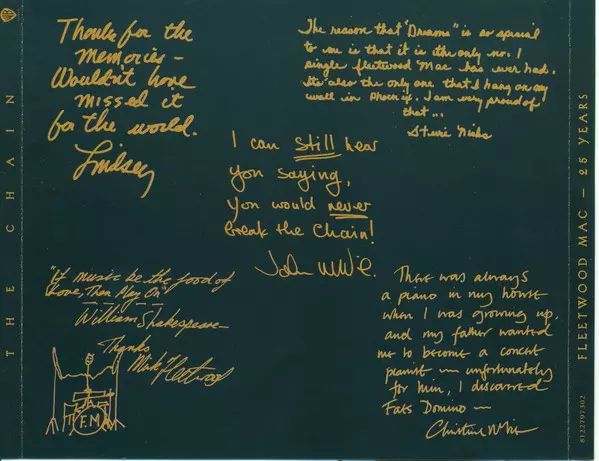 THE CHAIN
Thanks for the
memories –
Wouldn't have
missed it
for the world.
Lindsey
The reason that "Dreams" is so special
to me is that it is the only no. 1
single fleetwood Mac has ever had.
Its also the only one that I hang on my
wall in Phoenix. I am very proud of
that...
Stevie Nicks
I can still hear
you saying,
you would never
break the Chain!
John McVie.
"If music be the food of
Love, Then Play On"
William Shakespeare –
Thanks
Mick Fleetwood
F.M
There was always
a piano in my house
when I was growing up,
and my father wanted
me to become a concert
pianist – unfortunately
for him, I discovered
Fats Domino –
Christine McVie
FLEETWOOD MAC – 25 YEARS
8122797302